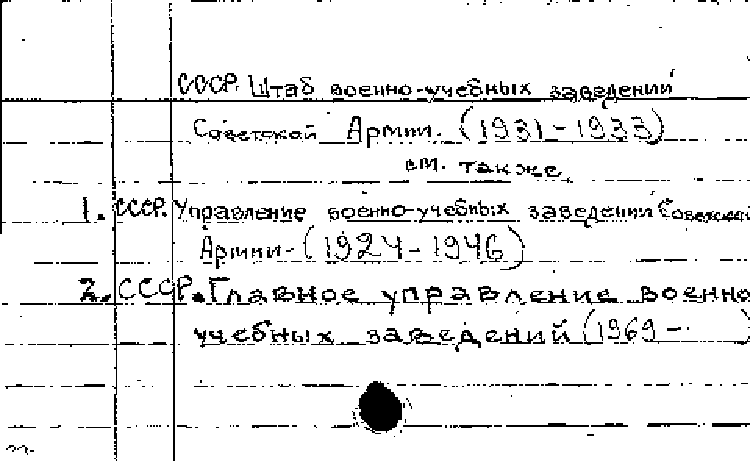 СССР. Штаб военно-учебных заведений
Советской Армии. (1931-1933)
см. также
1. СССР. Управление военно-учебных заведений Советской
Армии. (1924-1946)
2. СССР. Главное управление военно
учебных заведений (1969-. )